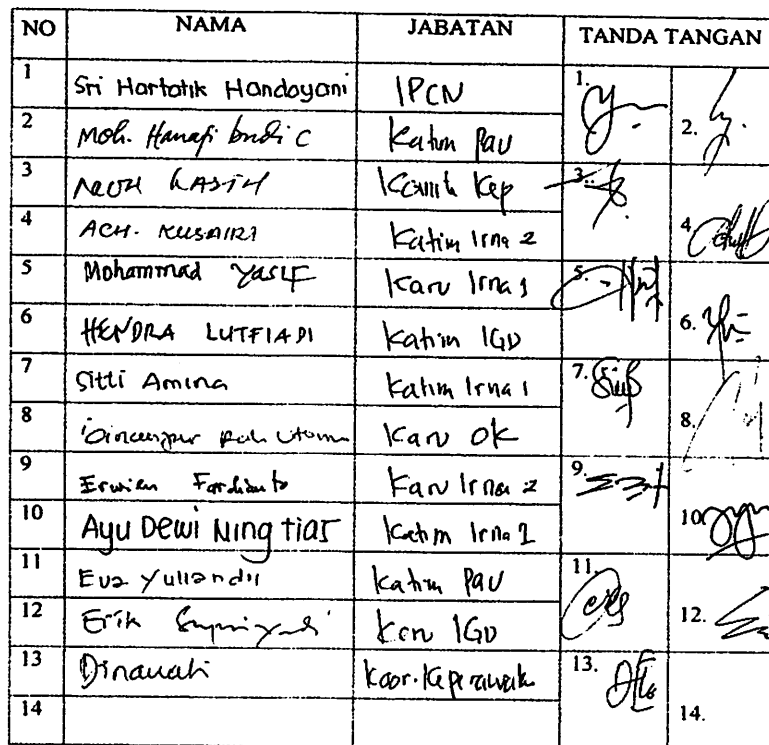 NO NAMA JABATAN TANDA TANGAN
1 Sri Hartatik Handayani IPCN 1.
2 Moh. Hanafi budi C Katim Pav 2.
3 KASIH Kep 3.
4 ACH. KUSAIRI Katim Irna 2 4.
5 Mohammad Yasif Karu Irna 1 5.
6 HENDRA LUTFIADI Katim IGD 6.
7 Sitti Amina Katim Irna 1 7.
8 Utomo Karu OK 8.
9 Erwien Fardianto Karu Irna 2 9.
10 Ayu Dewi Ningtias Katim Irna 1 10.
11 Eva Yuliandii Katim Pav 11.
12 Erik Supriyadi Karu IGD 12.
13 Dinawati 13.
14 14.